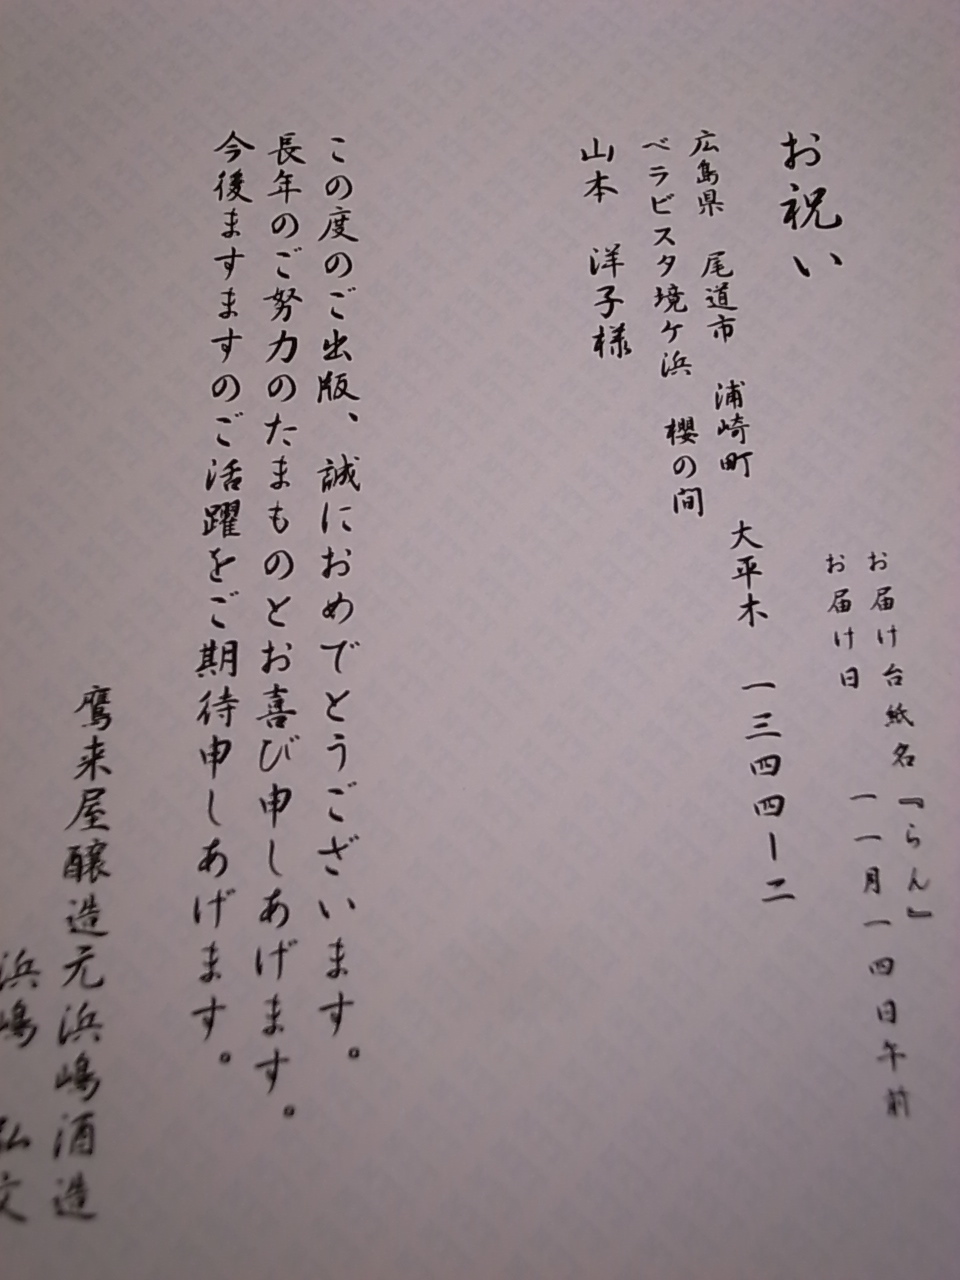 お届け台紙名『らん』
お届け日　一一月一四日午前
お祝い
広島県　尾道市　浦崎町　大平木　一三四四ー二
ベラビスタ境ケ浜　櫻の間
山本　洋子様
この度のご出版、誠におめでとうございます。
長年のご努力のたまものとお喜び申しあげます。
今後ますますのご活躍をご期待申しあげます。
鷹来屋醸造元浜嶋酒造
浜嶋　弘文